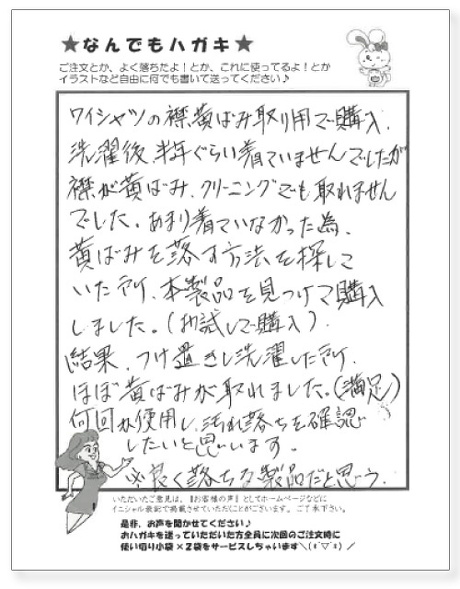 ★なんでもハガキ★
ご注文とか、よく落ちたよ!とか、これに使ってるよ!とか
イラストなど自由に何でも書いて送ってください♪
ワイシャツの襟黄ばみ取り用で購入.
洗濯後、半年ぐらい着ていませんでしたが
襟が黄ばみ、クリーニングでも取れません
でした。あまり着ていなかった為、
黄ばみを落す方法を探して
いた所、本製品を見つけて購入
しました。(お試しで購入).
結果、つけ置きし洗濯した所、
ほぼ黄ばみが取れました。(満足)
何回か使用し、汚れ落ちを確認
したいと思います。
※良く落ちる製品だと思う.
いただいたご意見は、『お客様の声』としてホームページなどに
イニシャル表記で掲載させていただくことがございます。ご了承下さい。
是非、お声を聞かせてください♪
おハガキを送っていただいた方全員に次回のご注文時に
使い切り小袋×2袋をサービスしちゃいます＼(*´▽`*)／